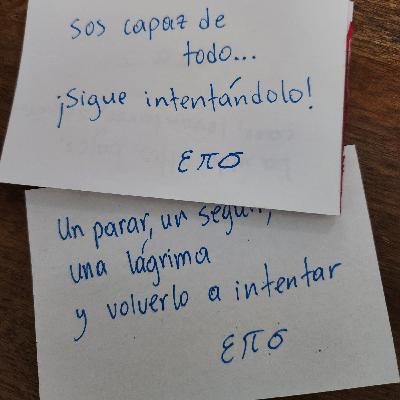 sos capaz de
todo...
¡Sigue intentándolo!
επσ
Un parar, un seguir,
una lágrima
y volverlo a intentar
επσ